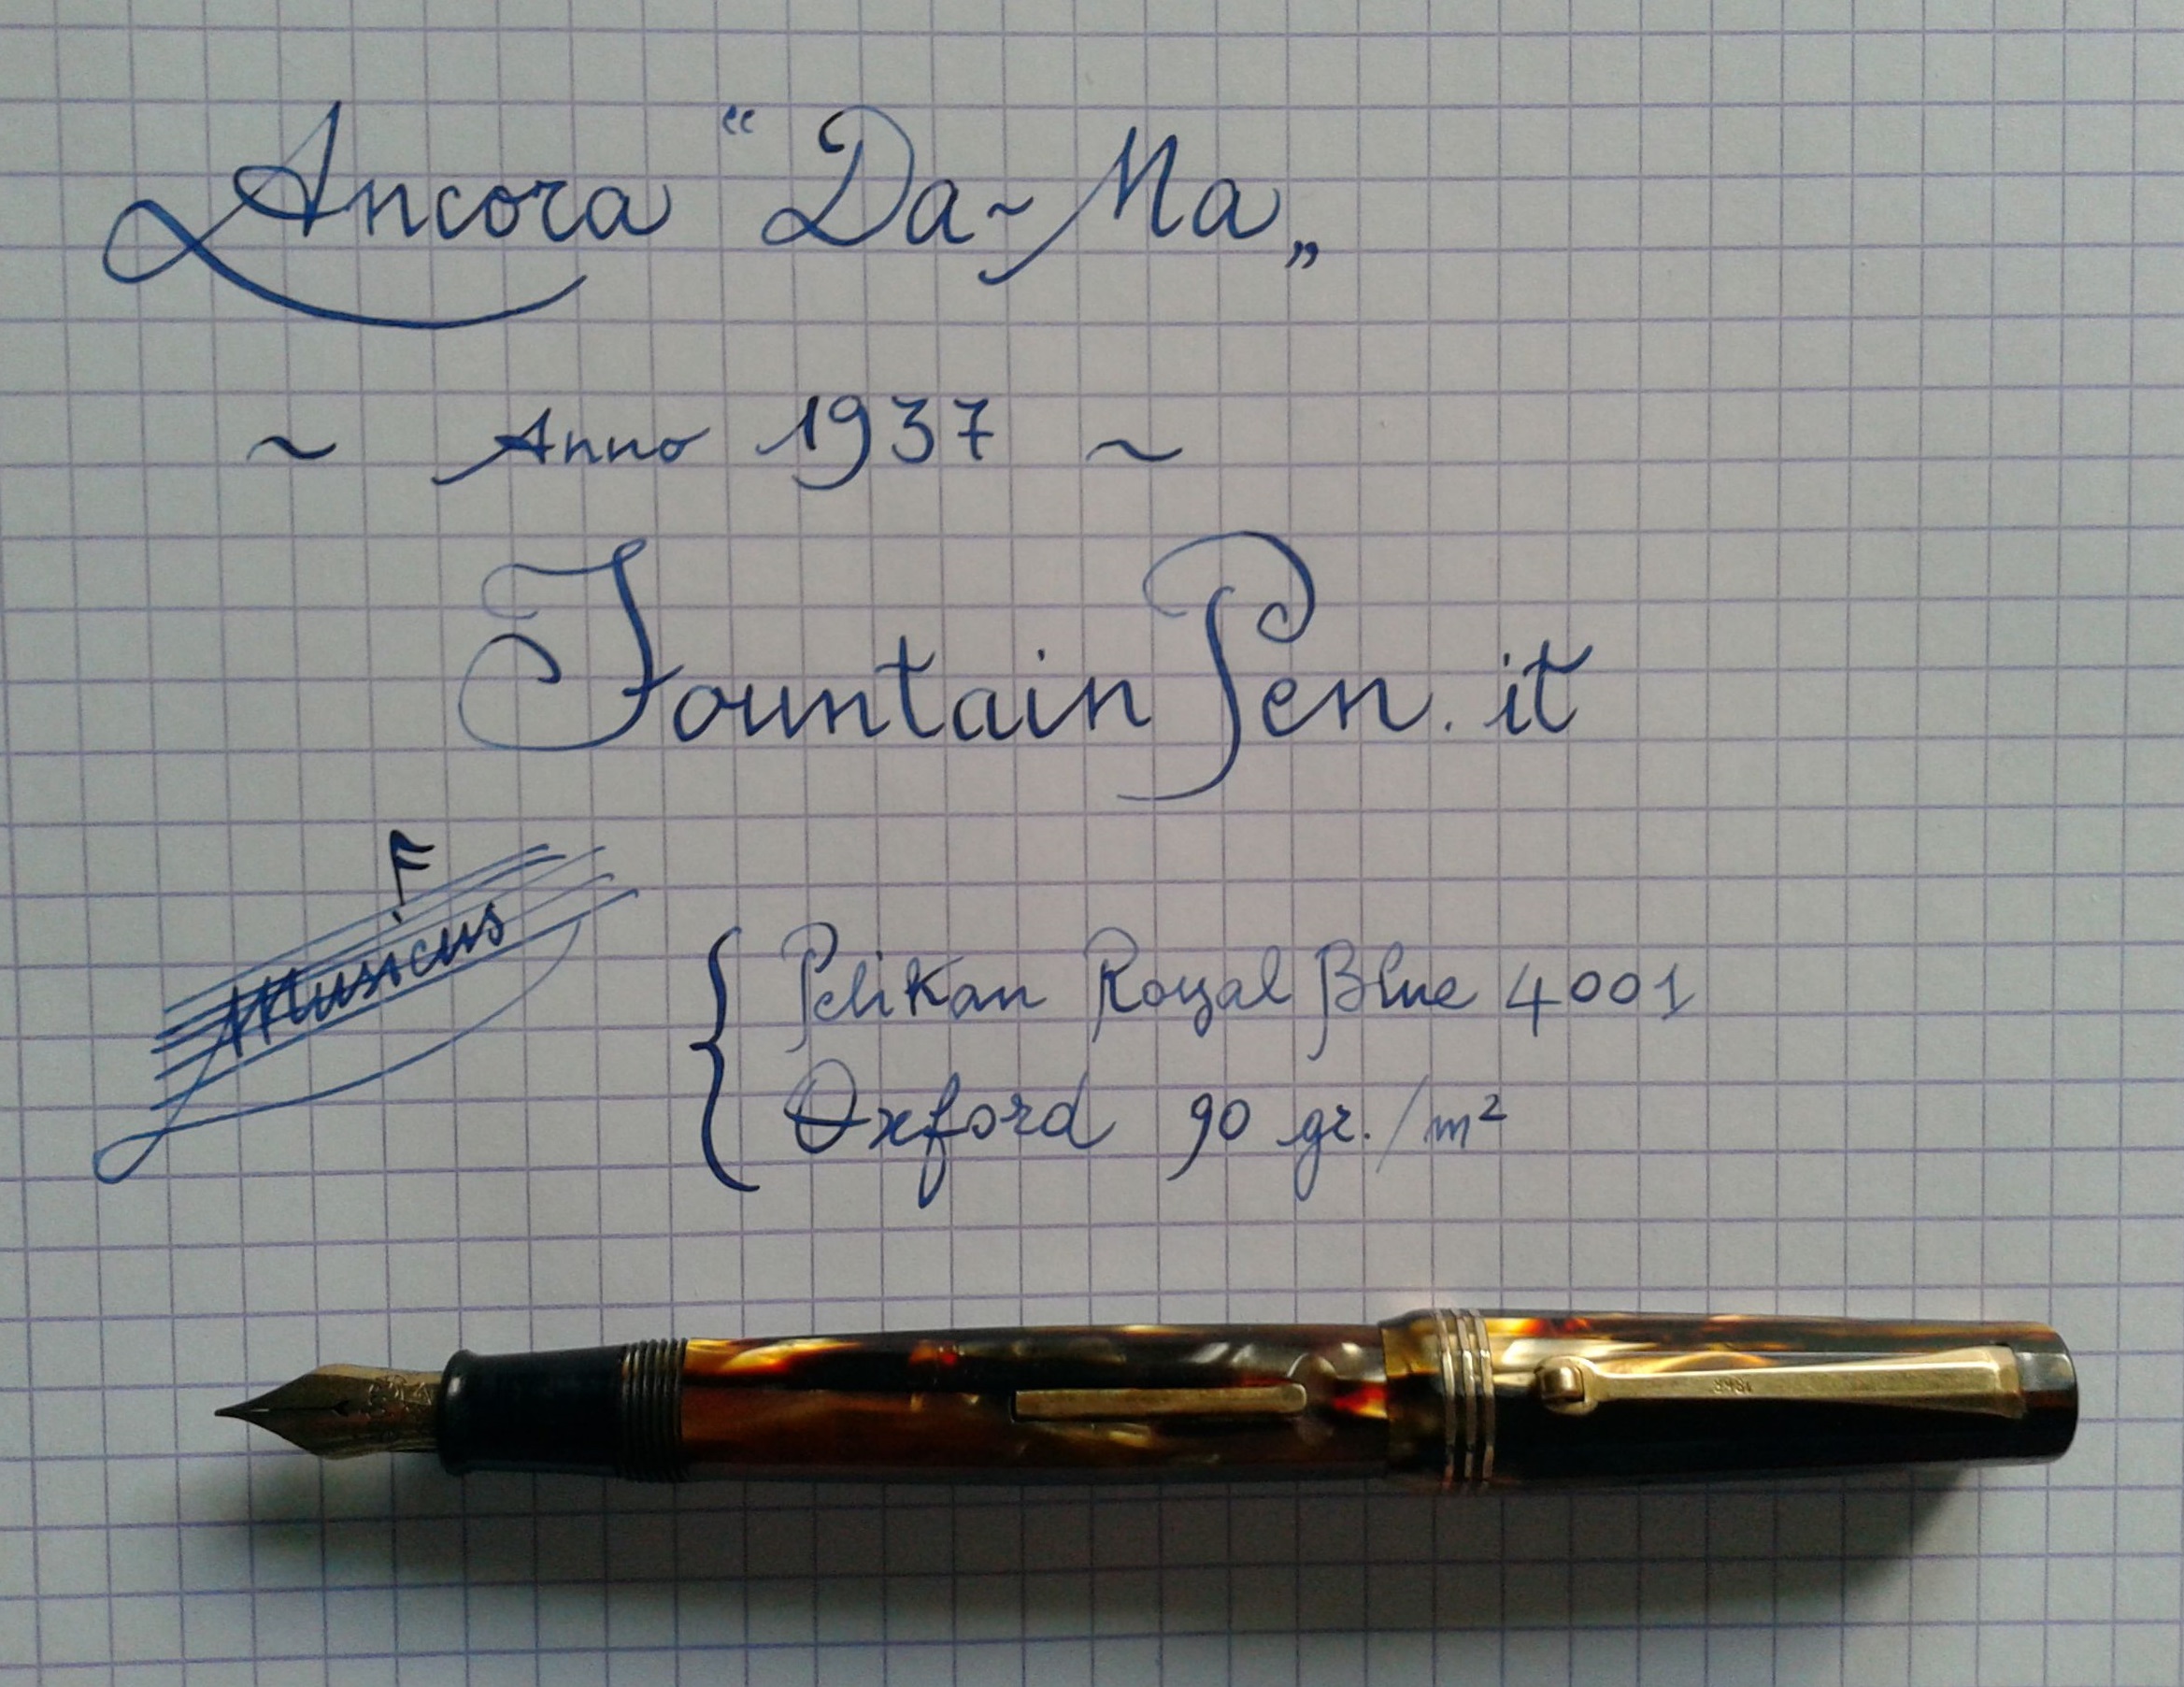 Ancora “Da~Ma„
~ Anno 1937 ~
FountainPen.it
Musicus
Pelikan Royal Blue 4001
Oxford 90 gr./m²